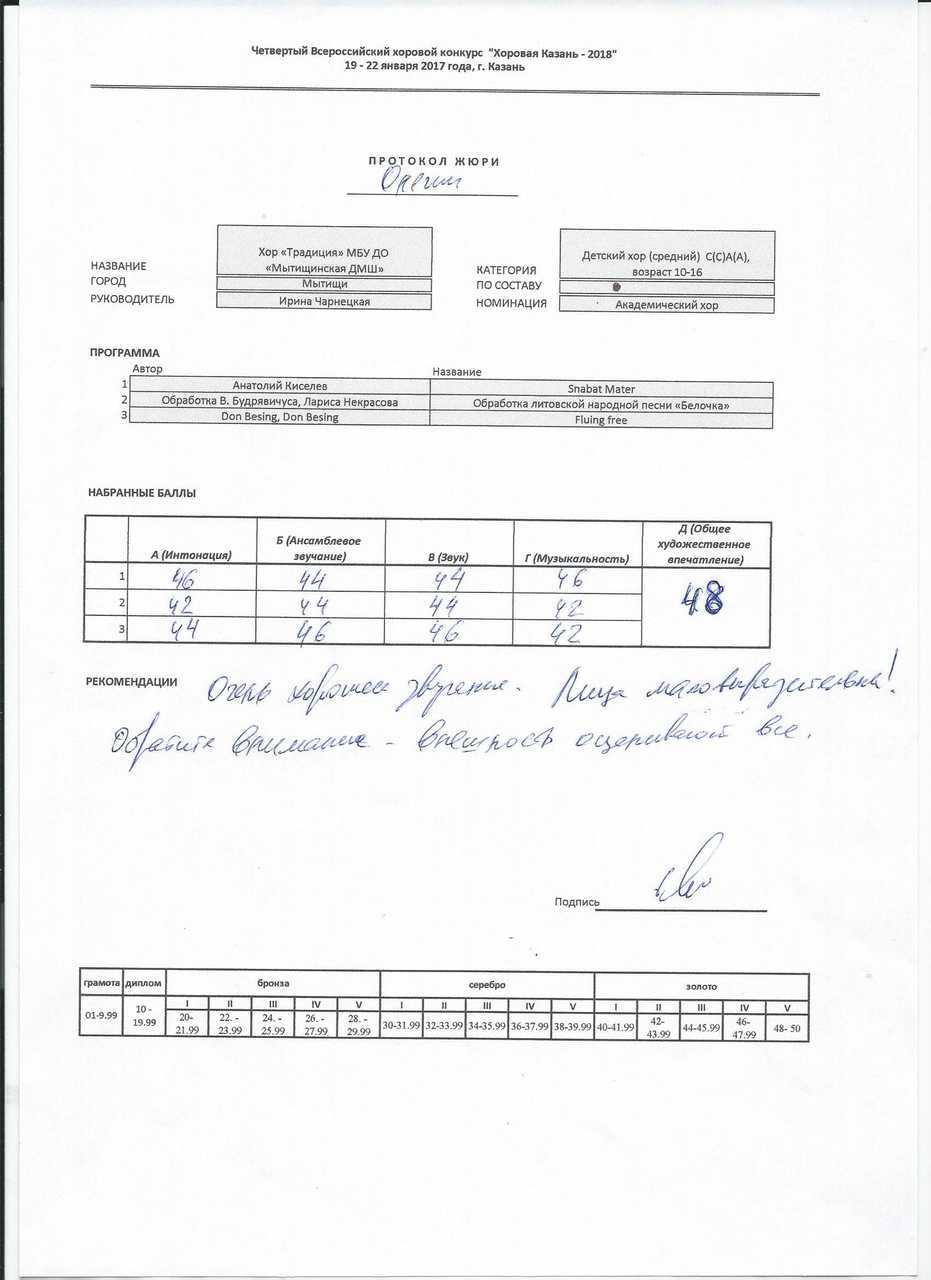 Четвертый Всероссийский хоровой конкурс "Хоровая Казань - 2018"
19 - 22 января 2017 года, г. Казань
ПРОТОКОЛ ЖЮРИ
НАЗВАНИЕ Хор «Традиция» МБУ ДО «Мытищинская ДМШ»
ГОРОД Мытищи
РУКОВОДИТЕЛЬ Ирина Чарнецкая
КАТЕГОРИЯ Детский хор (средний) С(С)А(А), возраст 10-16
ПО СОСТАВУ
НОМИНАЦИЯ Академический хор
ПРОГРАММА
Автор Название
1 Анатолий Киселев Snabat Mater
2 Обработка В. Будрявичуса, Лариса Некрасова Обработка литовской народной песни «Белочка»
3 Don Besing, Don Besing Fluing free
НАБРАННЫЕ БАЛЛЫ
А (Интонация) Б (Ансамблевое звучание) В (Звук) Г (Музыкальность) Д (Общее художественное впечатление)
1 46 44 44 46 48
2 42 44 44 42
3 44 46 46 42
РЕКОМЕНДАЦИИ Очень хорошее звучание. Лица маловыразительны!
Обратите внимание - внешность оценивают все.
Подпись
грамота диплом бронза серебро золото
I II III IV V I II III IV V I II III IV V
01-9.99 10 - 19.99 20-21.99 22. - 23.99 24. - 25.99 26. - 27.99 28. - 29.99 30-31.99 32-33.99 34-35.99 36-37.99 38-39.99 40-41.99 42-43.99 44-45.99 46-47.99 48- 50